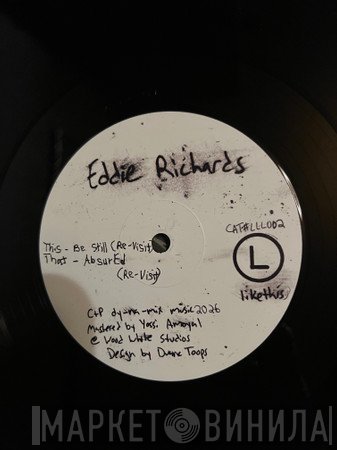 Eddie Richards
CAT#LLL002
This - Be Still (Re-Visit)
That - AbsurEd
(Re-Visit)
L
likethis
C+P dyna-mix music 2026
Mastered by Yossi Amoyal
@ Wood White Studios
Design by Duane Toops
МАРКЕТ ВИНИЛА